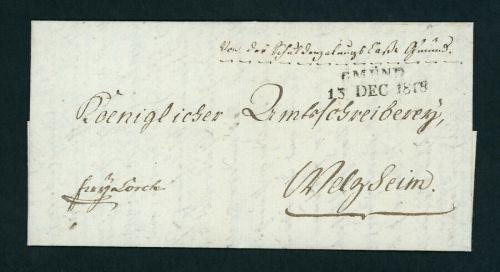 Von der Schuldenzalungs Casse Gmünd.
GMÜND
13 DEC 1818
Koeniglicher Amtsschreiberey,
frey Lorch
Welzheim.